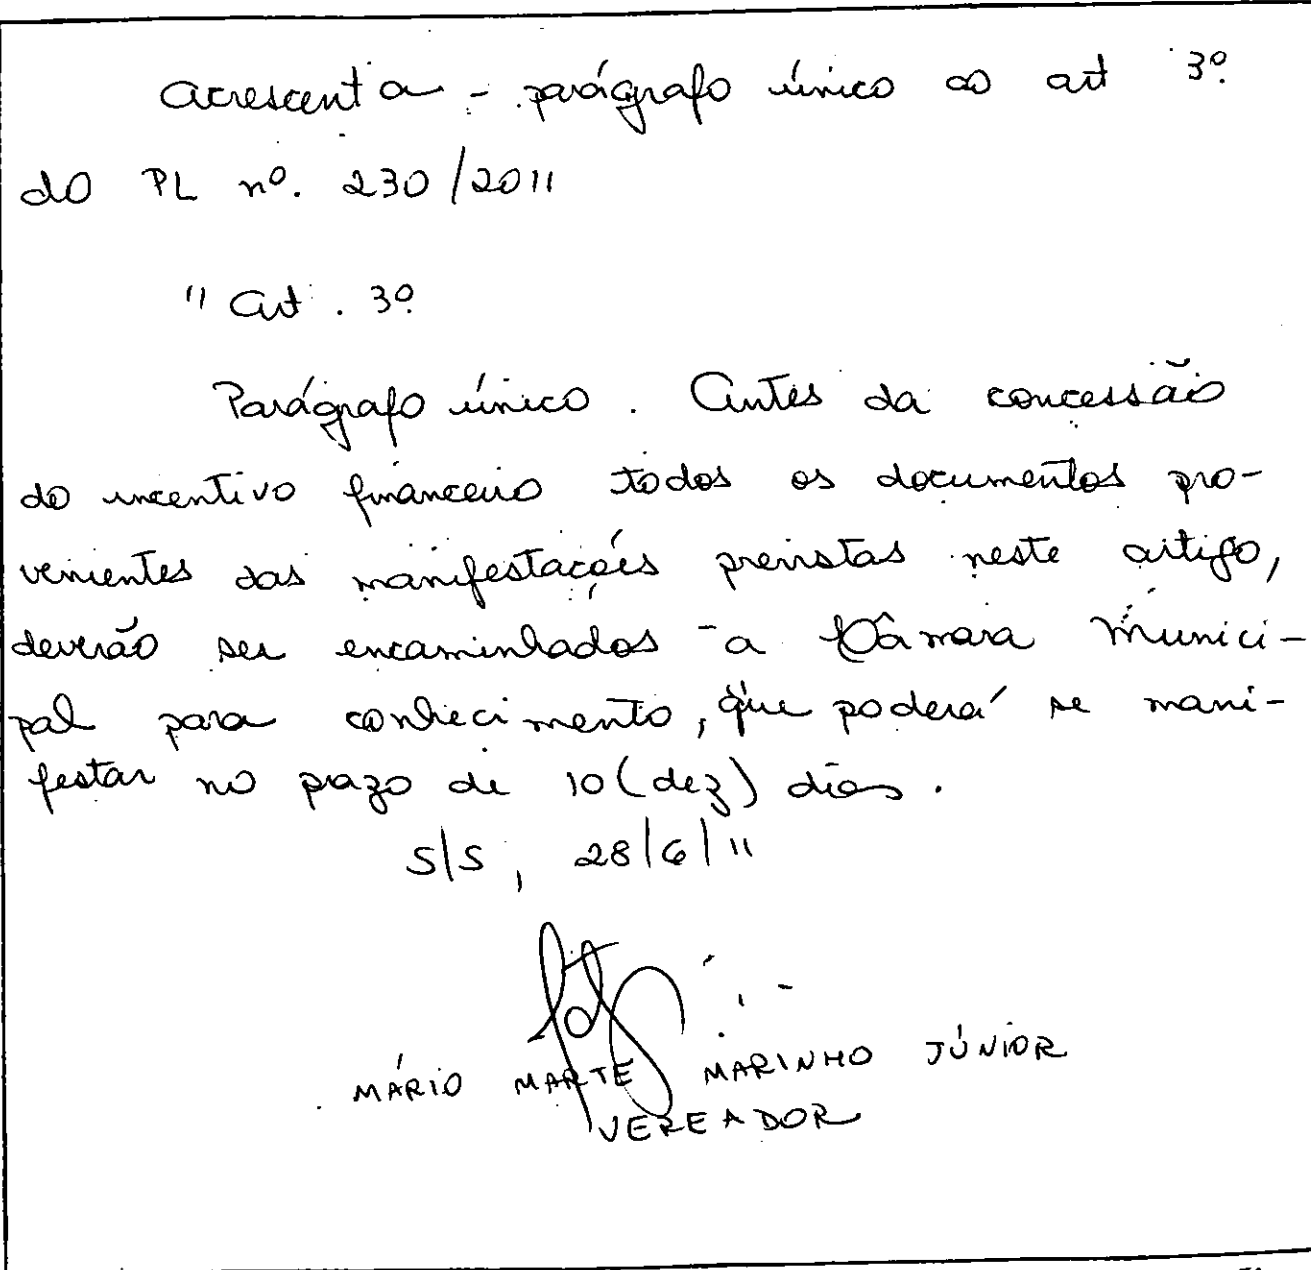 Acrescenta - parágrafo único ao art 3º
do PL nº. 230/2011
"Art. 3º
Parágrafo único. Antes da concessão
do incentivo financeiro todos os documentos pro-
venientes das manifestações previstas neste artigo,
deverão ser encaminhados a Câmara Munici-
pal para conhecimento, que poderá se mani-
festar no prazo de 10 (dez) dias.
S/S, 28/6/11
MÁRIO MARTE MARINHO JÚNIOR
VEREADOR